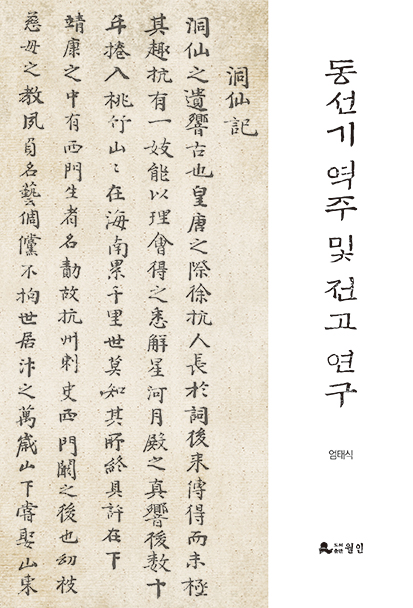 동선기 역주 및 전고 연구
엄태식
도서출판 월인
洞仙記
洞仙之遺響古也皇唐之際徐杭人長於詞後来傳得而未極
其趣杭有一妓能以理會得之悉解星河月殿之真響後數十
年捲入桃竹山〻在海南累千里世莫知其所終具詳在下
靖康之中有西門生者名勣故杭州刺史西門闕之後也幼被
慈母之教夙負名藝倜儻不拘世居汴之萬歲山下嘗娶山東